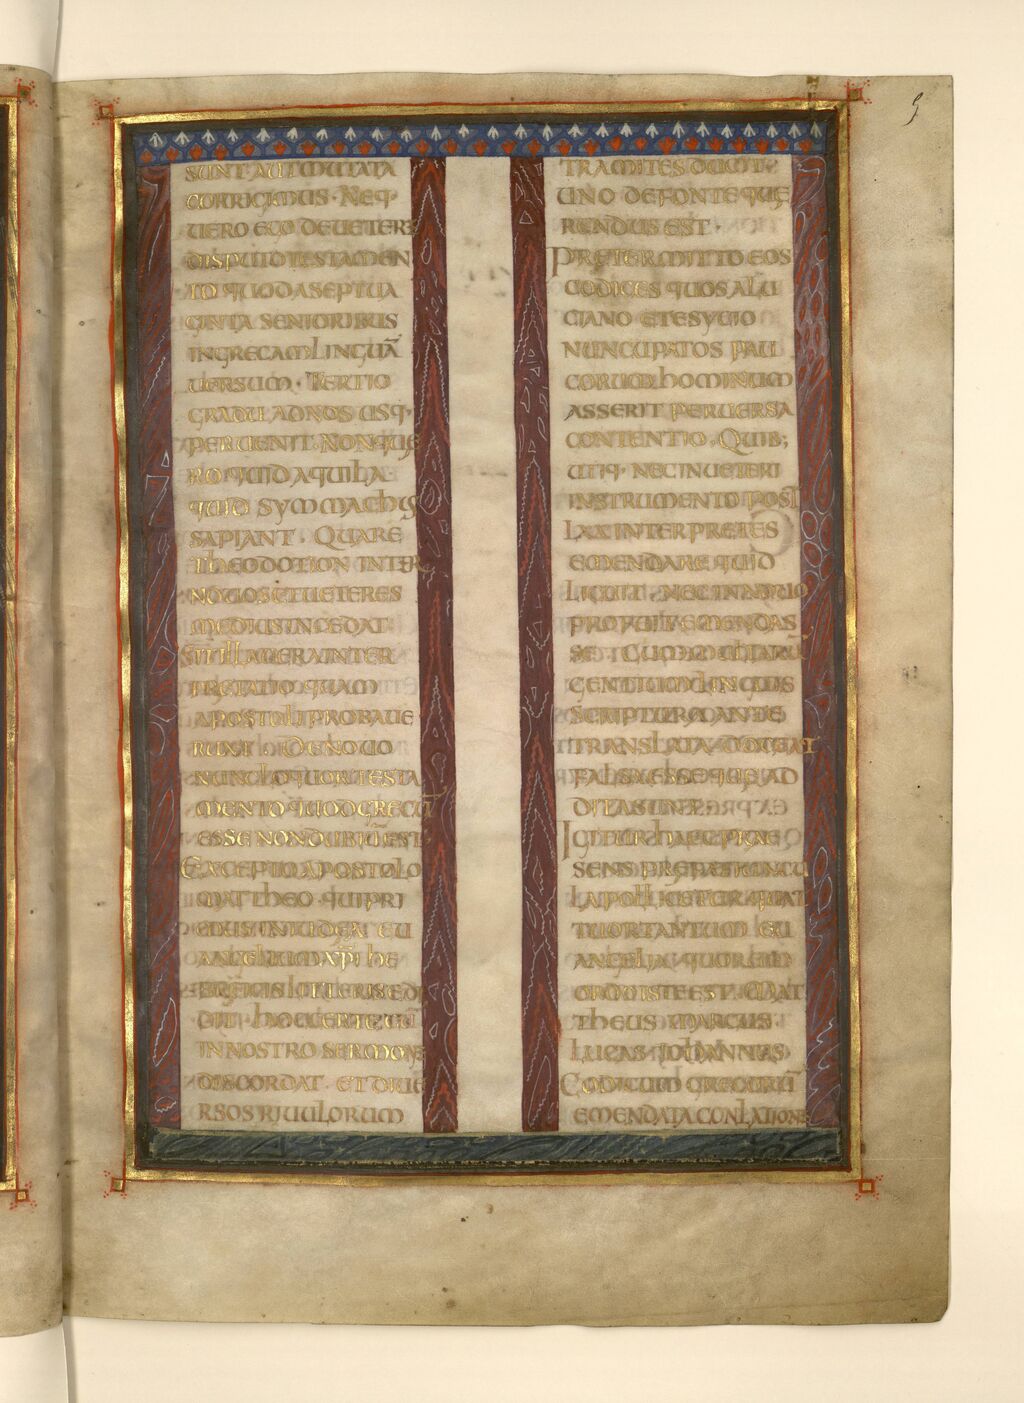 5
SUNT AUT MUTATA
CORRIGIMUS · NEQ·
UERO EGO DE UETERE
DISPUTO TESTAMEN
TO QUOD A SEPTUA
GINTA SENIORIBUS
IN GRECAM LINGUĀ
UERSUM · TERTIO
GRADU AD NOS USQ·
PERUENIT · NON QUE
RO QUID AQUILA·
QUID SYMMACHUS
SAPIANT · QUARE
THEODOTION INTER
NOUOS ET UETERES
MEDIUS INCEDAT·
SIT ILLA UERA INTER
PRETATIO QUAM
APOSTOLI PROBAUE
RUNT · DE NOUO
NUNC LOQUOR TESTA
MENTO QUOD GRECŪ
ESSE NON DUBIŪ EST·
EXCEPTO APOSTOLO
MATTHEO · QUI PRI
MUS IN IUDEA EU
ANGELIUM XP̄I HE
BREICIS LITTERIS EDI
DIT · HOC CERTE CŪ
IN NOSTRO SERMONE
DISCORDAT · ET DIUE
RSOS RIUULORUM
TRAMITES DUCIT·
UNO DE FONTE QUE
RENDUS EST ·
PRETERMITTO EOS
CODICES QUOS A LU
CIANO ET ESYCIO
NUNCUPATOS PAU
CORUM HOMINUM
ASSERIT PERUERSA
CONTENTIO · QUIB;
UTIQ· NEC IN UETERI
INSTRUMENTO POST
LXX INTERPRETES
EMENDARE QUID
LICUIT · NEC IN NOUO
PROFUIT EMENDAS
SE · CUM MULTARŪ
GENTIUM LINGUIS
SCRIPTURA ANTE
TRANSLATA DOCEAT
FALSA ESSE QUE AD
DITA SUNT ·
IGITUR HAEC PRAE
SENS PREFATIUNCU
LA POLLICETUR QUAT
TUOR TANTUM EU
ANGELIA · QUORUM
ORDO ISTE EST · MAT
THEUS MARCUS
LUCAS IOHANNES
CODICUM GRECORŪ
EMENDATA CONLATIONE